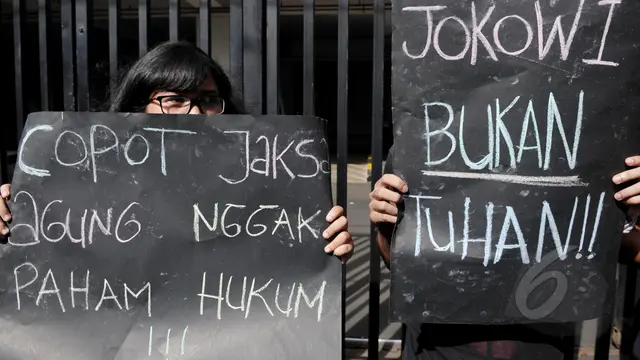 COPOT JAKSA
AGUNG NGGAK
PAHAM HUKUM
!!!
JOKOWI
BUKAN
TUHAN!!
6